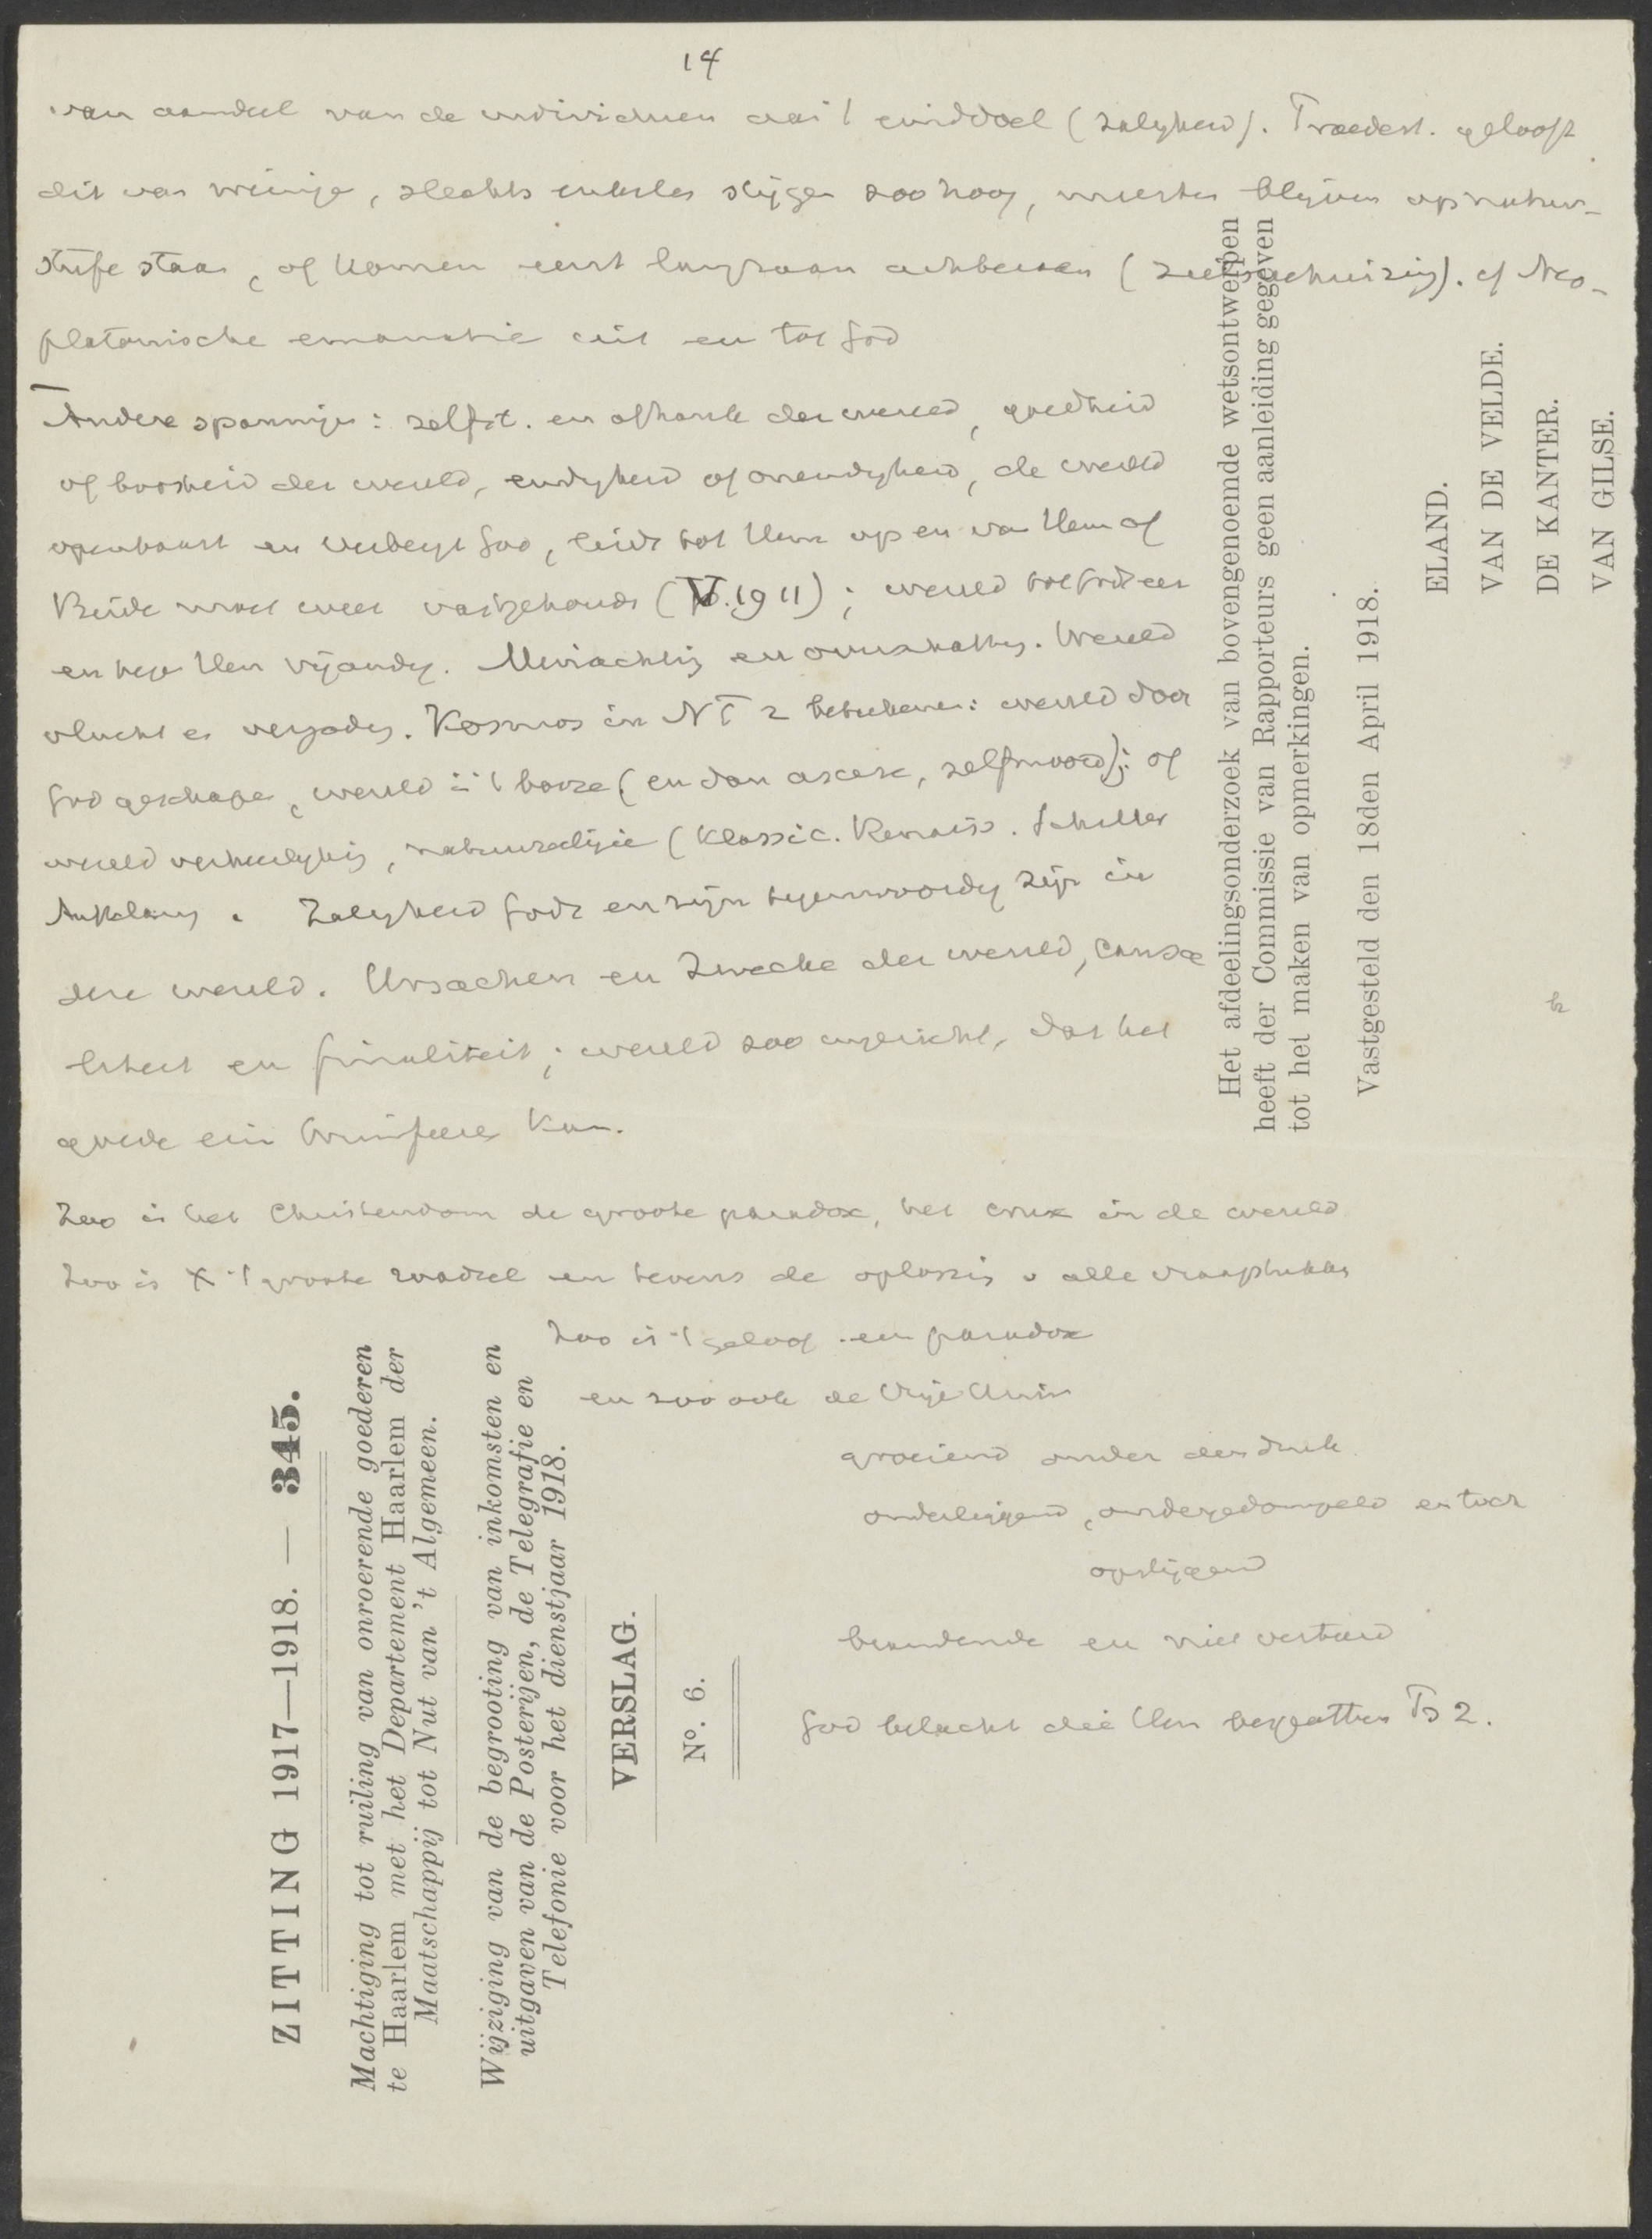 14
van aandeel van de individuen aan 't einddoel (zaligheid). Troeltsch. gelooft
dit van weinige, slechts enkelen stijgen zoo hoog, meesten blijven op natur-
stufe staan, of komen eerst langzaam achteraan (zielsverhuizing). cf Neo-
platonische emanatie uit en tot God
Andere spanningen: zelfst. en afhank der wereld, goedheid
of boosheid der wereld, eindigheid of oneindigheid, de wereld
openbaart en verbergt God, leidt tot Hem op en van Hem af
Beide moet weer vastgehouden (V. 1911); wereld tot Gods eer
en tegen Hem vijandig. Minachting en overschatting. Wereld
vlucht en vergoding. Kosmos in NT 2 beteekenen: wereld door
God geschapen, wereld in 't booze (en dan ascese, zelfmoord); of
wereld verheerlijking, natuurreligie (Klassic. Renaiss. Schiller
Aufklärung. Zaligheid Gods en zijn tegenwoordig zijn in
deze wereld. Ursachen en Zwecke der wereld, causa
liteit en finaliteit; wereld zoo ingericht, dat het
goede erin triumfeeren kan.
Zoo is het Christendom de groote paradox, het crux in de wereld
Zoo is X 't groote raadsel en tevens de oplossing v alle vraagstukken
Zoo is 't geloof een paradox
en zoo ook de Vrije Univ
groeiend onder den druk
onderliggend, ondergedompeld en toch
opstijgend
brandende en niet verteerd
God belacht die Hem bespotten Ps 2.
Het afdeelingsonderzoek van bovengenoemde wetsontwerpen
heeft der Commissie van Rapporteurs geen aanleiding gegeven
tot het maken van opmerkingen.
Vastgesteld den 18den April 1918.
ELAND.
VAN DE VELDE.
DE KANTER.
VAN GILSE.
ZITTING 1917—1918. — 345.
Machtiging tot ruiling van onroerende goederen
te Haarlem met het Departement Haarlem der
Maatschappij tot Nut van 't Algemeen.
Wijziging van de begrooting van inkomsten en
uitgaven van de Posterijen, de Telegrafie en
Telefonie voor het dienstjaar 1918.
VERSLAG.
N°. 6.